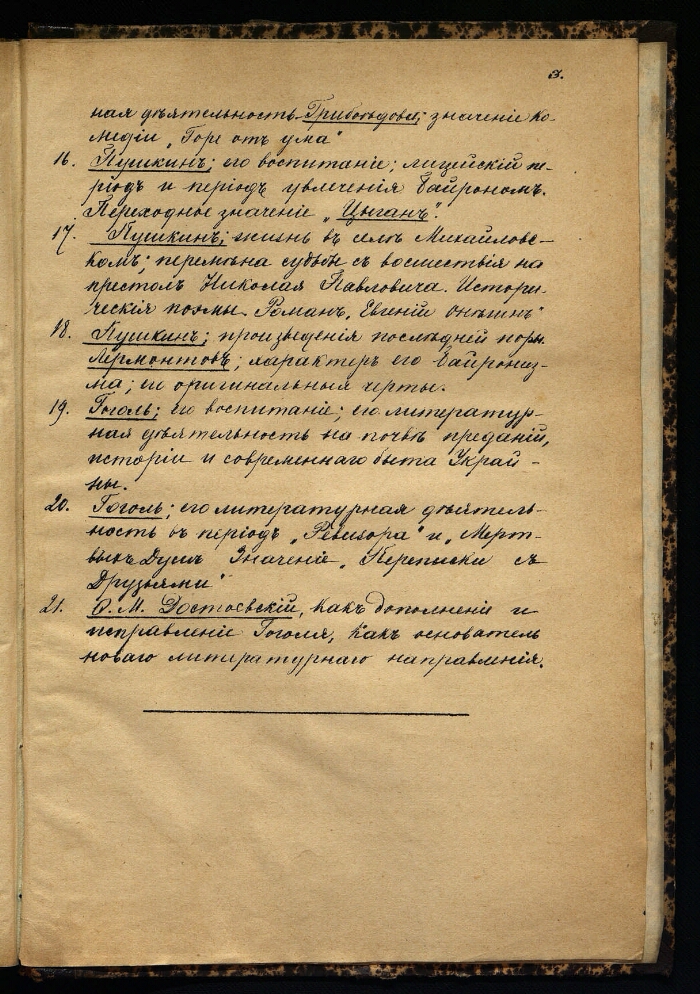 3.
ная дѣятельность Грибоѣдова; значеніе ко-
медіи „Горе отъ ума"
16. Пушкинъ; его воспитаніе; лицейскій пе-
ріодъ и періодъ увлеченія Байрономъ.
Переходное значеніе „Цыганъ".
17. Пушкинъ; жизнь въ селѣ Михайловс-
комъ; перемѣна судьбы съ восшествія на
престолъ Николая Павловича. Истори-
ческія поэмы. Романъ „Евгеній Онѣгинъ"
18. Пушкинъ; произведенія послѣдней поры.
Лермонтовъ; характеръ его байрониз-
ма; его оригинальныя черты.
19. Гоголь; его воспитаніе; его литератур-
ная дѣятельность на почвѣ преданій,
исторіи и современнаго быта Украй-
ны.
20. Гоголь; его литературная дѣятель-
ность въ періодъ „Ревизора" и „Мерт-
выхъ Душъ Значеніе „Переписки съ
Друзьями"
21. Ѳ. М. Достоевскій, какъ дополненіе и
исправленіе Гоголя, какъ основатель
новаго литературнаго направленія.